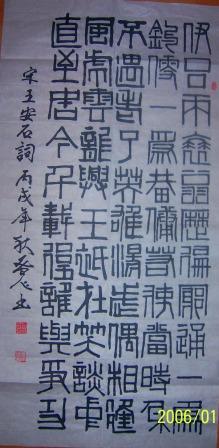 伊呂兩衰翁歷徧窮通一爲
釣叟一爲耕傭若使當時身
不遇老了英雄湯武偶相逢
風虎雲龍興王祇在笑談中
直至如今千載後誰與爭功
宋王安石詞 丙戌年秋 书
2006/01